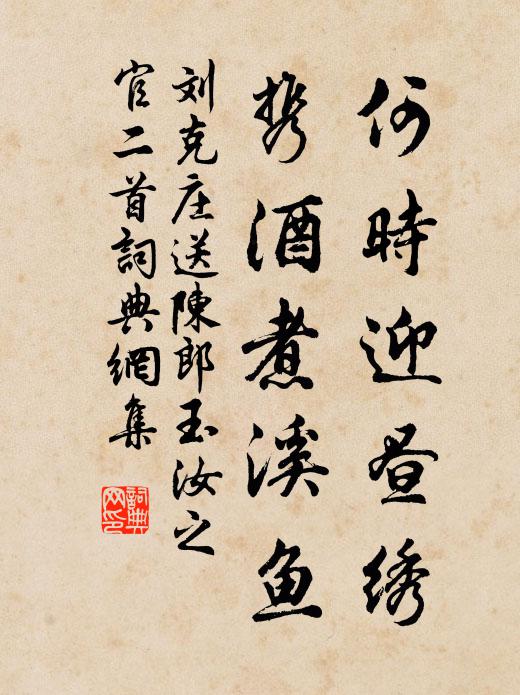 何時迎昼綉
携酒煮溪鱼
刘克庄送陳郎玉汝之
官二首詞典網集
詞典
网印